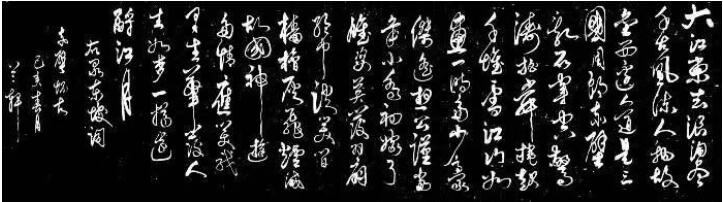 大江東去浪淘盡
千古風流人物故
壘西邊人道是三
國周郎赤壁
亂石穿空驚
濤拍岸捲起
千堆雪江山如
畫一時多少豪
傑遙想公瑾當
年小喬初嫁了
雄姿英發羽扇
綸巾談笑間
檣櫓灰飛煙滅
故國神遊
多情應笑我
早生華髮人
生如夢一樽還
酹江月
右录東坡词
赤壁怀古
己亥春月